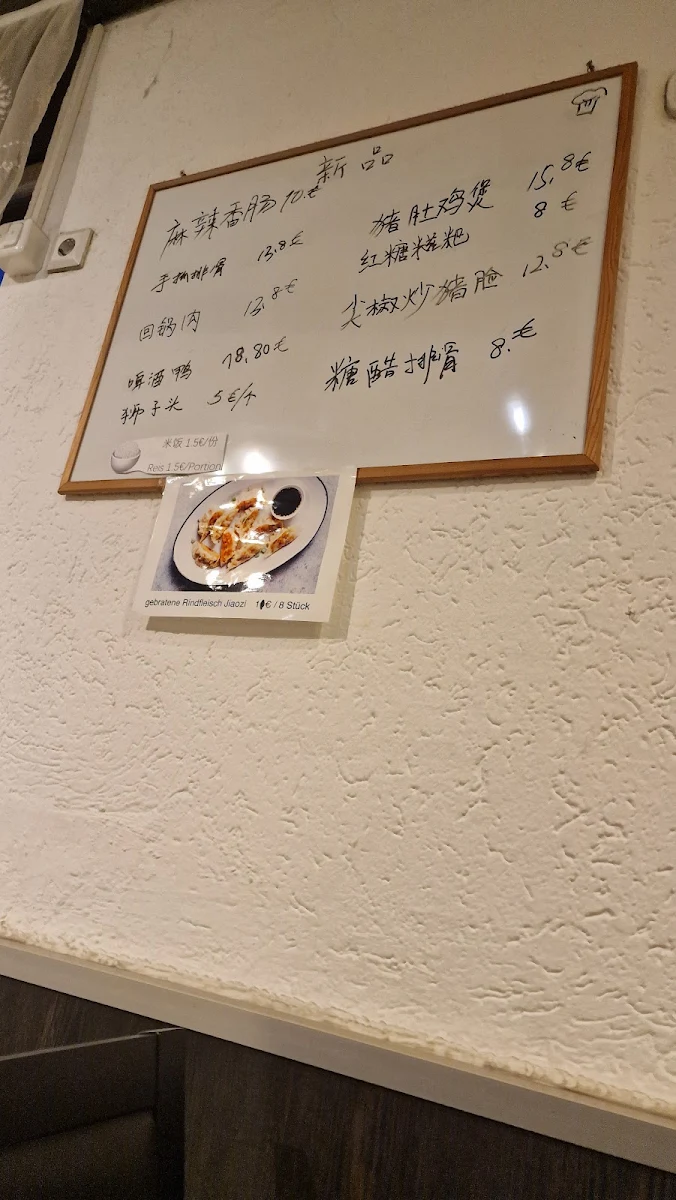 新品
麻辣香肠 10.€
手抓排骨 13.8€
回锅肉 13,8€
啤酒鸭 18,80€
狮子头 5€/个
猪肚鸡煲 15,8€
红糖糍粑 8€
尖椒炒猪脸 12,8€
糖醋排骨 8.€
米饭 1.5€/份
Reis 1.5€/Portion
gebratene Rindfleisch Jiaozi € / 8 Stück